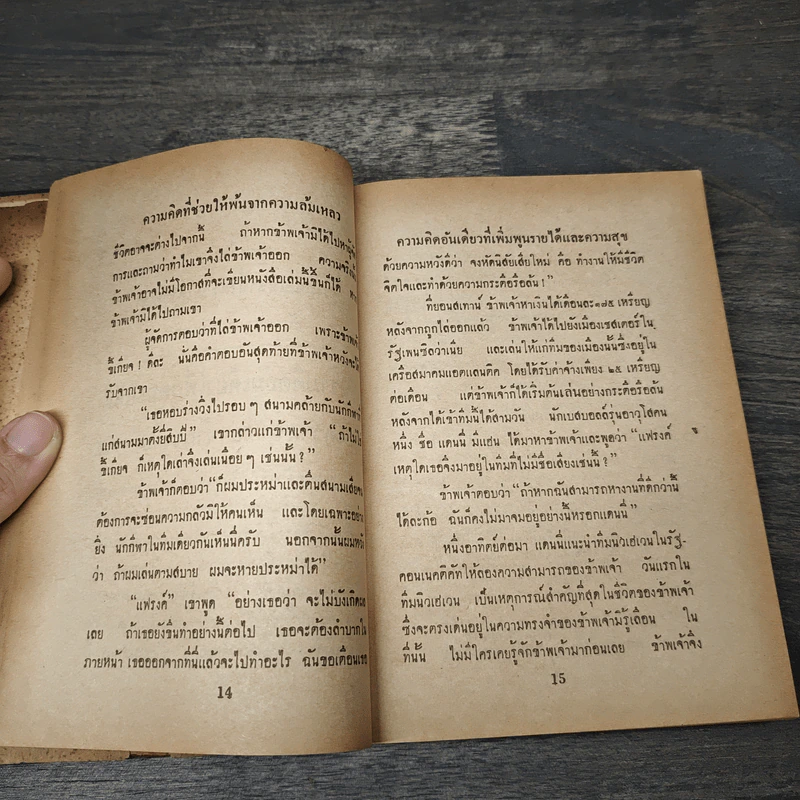 ความคิดที่ช่วยให้พ้นจากความล้มเหลว
ชีวิตอาจจะต่างไปจากนี้ ถ้าหากข้าพเจ้ามิได้ไปหา
การและถามว่าทำไมเขาจึงไล่ข้าพเจ้าออก ความจริง
ข้าพเจ้าอาจไม่มีโอกาสที่จะเขียนหนังสือเล่มนี้ขึ้นก็ได้
ข้าพเจ้ามิได้ไปถามเขา
ผู้จัดการตอบว่าที่ไล่ข้าพเจ้าออก เพราะข้าพเจ้า
ขี้เกียจ ! ดีละ นั่นคือคำตอบอันสุดท้ายที่ข้าพเจ้าหวังจะได้
รับจากเขา
“เธอหอบร่างวิ่งไปรอบ ๆ สนามคล้ายกับนักกีฬา
แก่สนามมาตั้งยี่สิบปี” เขากล่าวแก่ข้าพเจ้า “ถ้าไม่ใช่
ขี้เกียจ ก็เหตุใดเล่าจึงเล่นเนือย ๆ เช่นนั้น ? ”
ข้าพเจ้าก็ตอบว่า “ก็ผมประหม่าและตื่นสนามเสียจน
ต้องการจะซ่อนความกลัวมิให้คนเห็น และโดยเฉพาะอย่าง
ยิ่ง นักกีฬาในทีมเดียวกันเห็นนี่ครับ นอกจากนั้นผมหวัง
ว่า ถ้าผมเล่นตามสบาย ผมจะหายประหม่าได้”
“แฟรงค์” เขาพูด “อย่างเธอว่า จะไม่บังเกิดผล
เลย ถ้าเธอยังขืนทำอย่างนี้ต่อไป เธอจะต้องลำบากใน
ภายหน้า เธอออกจากที่นี่แล้วจะไปทำอะไร ฉันขอเตือนเธอ
14
ความคิดอันเดียวที่เพิ่มพูนรายได้และความสุข
ด้วยความหวังดีว่า จงหัดนิสัยเสียใหม่ คือ ทำงานให้มีชีวิต
จิตใจและทำด้วยความกระตือรือล้น ! ”
ที่ยอนสเทาน์ ข้าพเจ้าหาเงินได้เดือนละ ๑๗๕ เหรียญ
หลังจากถูกไล่ออกแล้ว ข้าพเจ้าได้ไปยังเมืองเชสเตอร์ใน
รัฐเพนซิลว่าเนีย และเล่นให้แก่ทีมของเมืองนั้นซึ่งอยู่ใน
เครือสมาคมแอตแลนติค โดยได้รับค่าจ้างเพียง ๒๕ เหรียญ
ต่อเดือน แต่ข้าพเจ้าก็ได้เริ่มต้นเล่นอย่างกระตือรือล้น
หลังจากได้เข้าทีมนี้ได้สามวัน นักเบสบอลล์รุ่นอาวุโสคน
หนึ่ง ชื่อ แดนนี่ มี่แฮน ได้มาหาข้าพเจ้าและพูดว่า “แฟรงค์
เหตุใดเธอจึงมาอยู่ในทีมที่ไม่มีชื่อเสียงเช่นนี้ ? ”
ข้าพเจ้าตอบว่า “ถ้าหากฉันสามารถหางานที่ดีกว่านี้
ได้ละก้อ ฉันก็คงไม่มาจมอยู่อย่างนี้หรอกแดนนี่”
หนึ่งอาทิตย์ต่อมา แดนนี่แนะนำทีมนิวเฮเวนในรัฐ-
คอนเนคติคัทให้ลองความสามารถของข้าพเจ้า วันแรกใน
ทีมนิวเฮเวน เป็นเหตุการณ์สำคัญที่สุดในชีวิตของข้าพเจ้า
ซึ่งจะตรงเด่นอยู่ในความทรงจำของข้าพเจ้ามิรู้เลือน ใน
ที่นั้น ไม่มีใครเคยรู้จักข้าพเจ้ามาก่อนเลย ข้าพเจ้าจึง
15